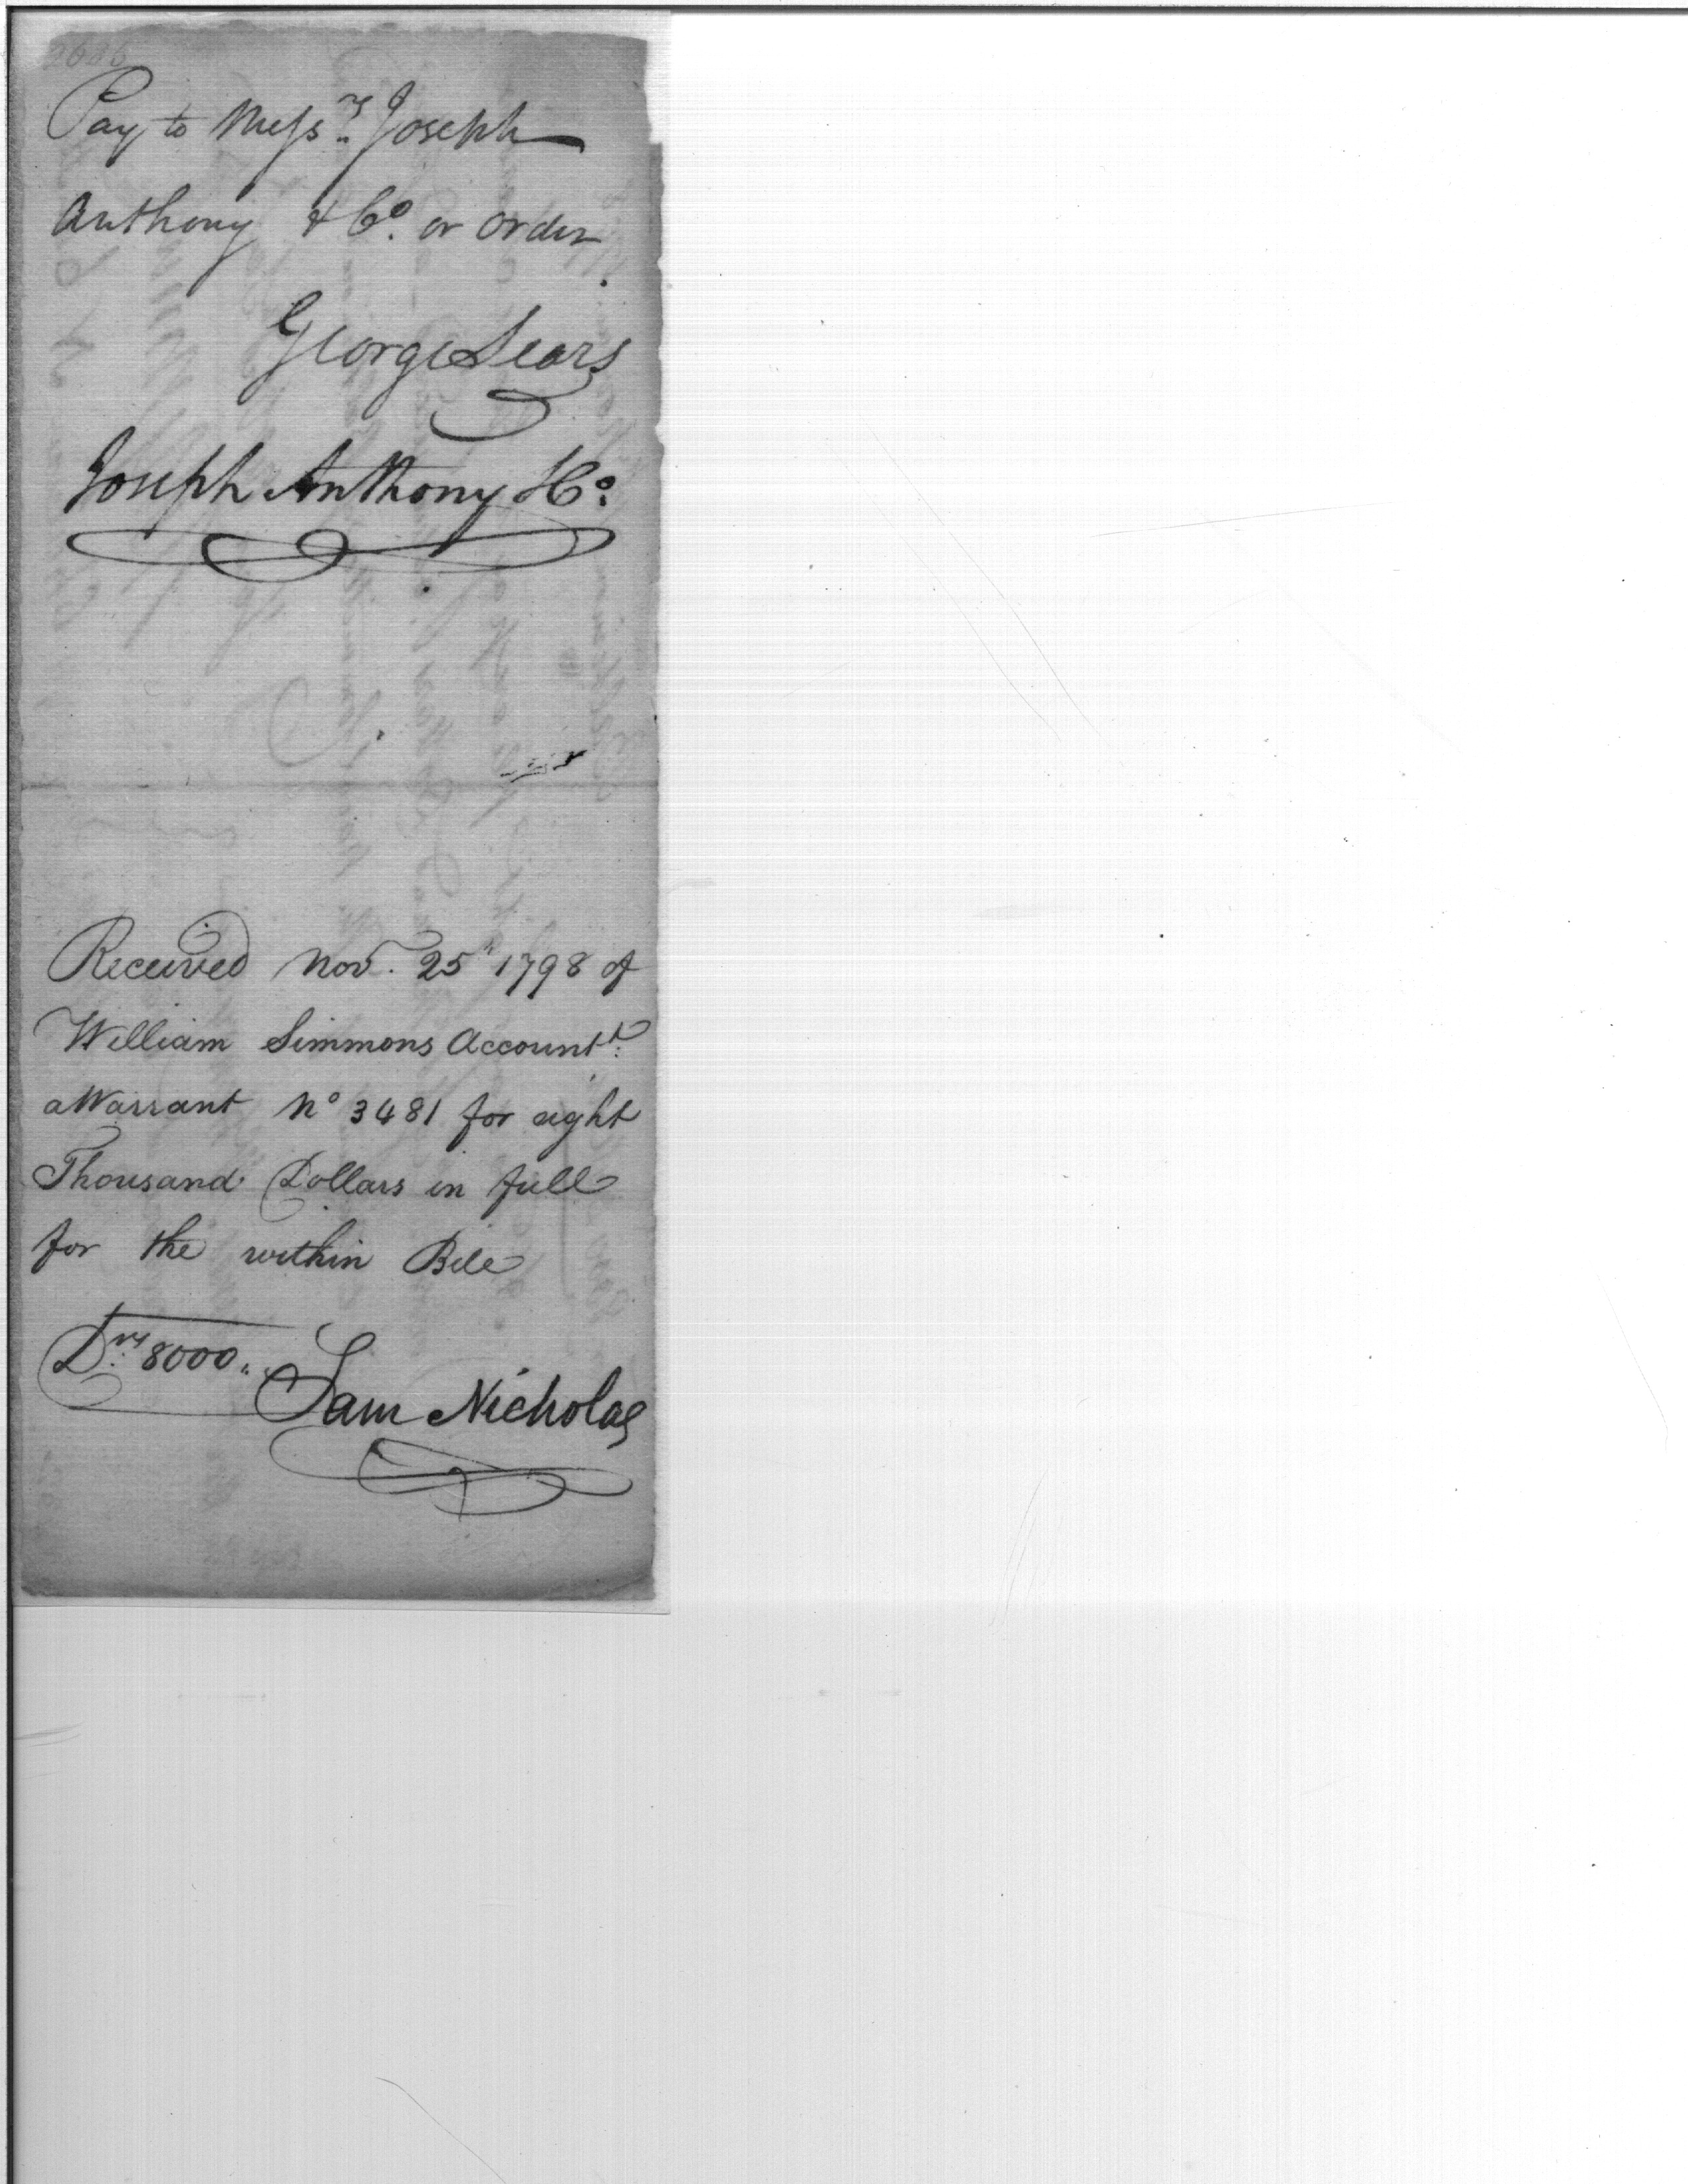 Pay to Messrs. Joseph
Anthony & Co. or order
George Sears
Joseph Anthony & Co.
Received Nov. 25th 1798 of
William Simmons Accountt.
a Warrant No 3481 for eight
Thousand Dollars in full
for the within Bill
Drs. 8000..
Sam Nicholas